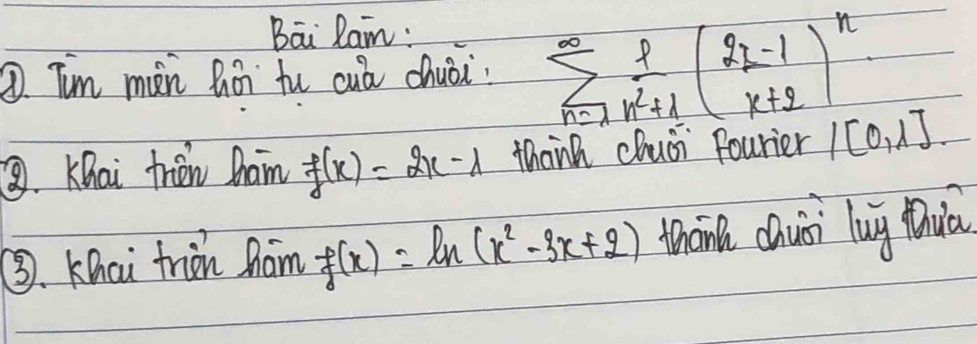 Bài làm:
①. Tìm miền hội tụ của chuỗi: \sum_{n=1}^{\infty} \frac{1}{n^2+1} \left( \frac{2x-1}{x+2} \right)^n.
②. Khai triển hàm f(x) = 2x - 1 thành chuỗi Fourier / [0,1].
③. Khai triển hàm f(x) = ln (x² - 3x + 2) thành chuỗi luỹ thừa